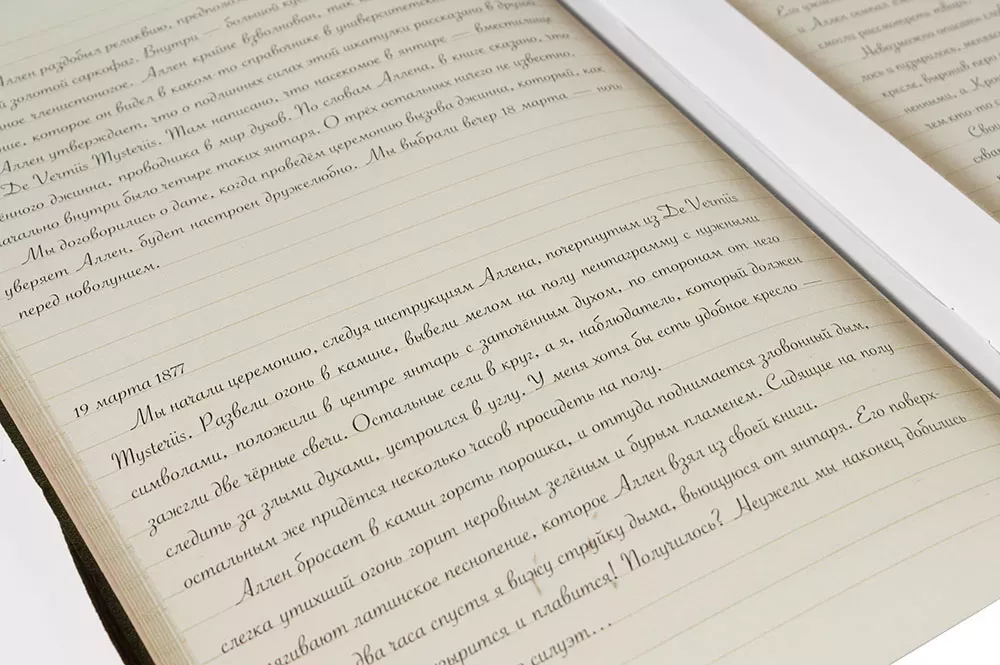 Аллен раздобыл реликвию, предполо
й золотой саркофаг. Внутри — большой ку
ное членистоногое. Аллен крайне взволнован, так
ние, которое он видел в каком-то справочнике в университетской
Аллен утверждает, что о подлинных силах этой шкатулки рассказано в другой
De Vermiis Mysteriis. Там написано, что насекомое в янтаре — вместилище
ённого джинна, проводника в мир духов. По словам Аллена, в книге сказано, что
начально внутри было четыре таких янтаря. О трёх остальных ничего не известно.
Мы договорились о дате, когда проведём церемонию вызова джинна, который, как
уверяет Аллен, будет настроен дружелюбно. Мы выбрали вечер 18 марта — ночь
перед новолунием.
19 марта 1877
Мы начали церемонию, следуя инструкциям Аллена, почерпнутым из De Vermiis
Mysteriis. Развели огонь в камине, вывели мелом на полу пентаграмму с нужными
символами, положили в центре янтарь с заточённым духом, по сторонам от него
зажгли две чёрные свечи. Остальные сели в круг, а я, наблюдатель, который должен
следить за злыми духами, устроился в углу. У меня хотя бы есть удобное кресло —
остальным же придётся несколько часов просидеть на полу.
Аллен бросает в камин горсть порошка, и оттуда поднимается зловонный дым,
слегка утихший огонь горит неровным зелёным и бурым пламенем. Сидящие на полу
тягивают латинское песнопение, которое Аллен взял из своей книги.
два часа спустя я вижу струйку дыма, вьющуюся от янтаря. Его поверх-
зырится и плавится! Получилось? Неужели мы наконец добились
о силуэт...
Его ужа
и Аллен остал
смогли рассмотреть тварь.
Невозможно описать
лось и пузырилось, меняя
кресле, вырвав пер
венными, а Кро
чем кто-то
Сво
схва